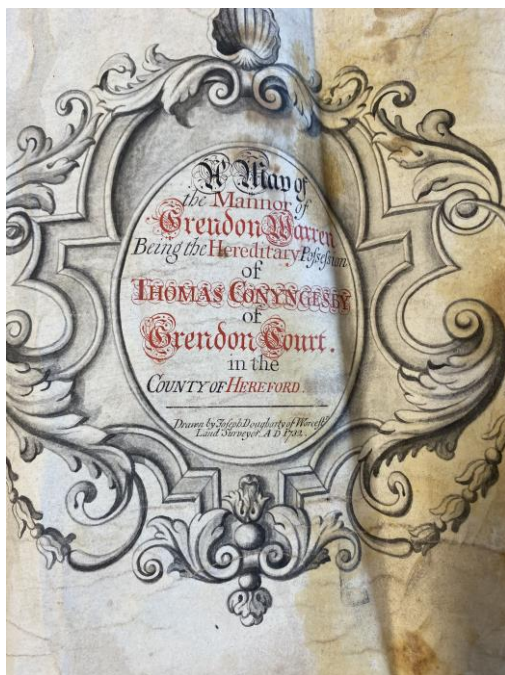 A Map of
the Mannor of
Grendon Warren
Being the Hereditary Possession
of
THOMAS CONYNGESBY
of
Grendon Court.
in the
COUNTY OF HEREFORD.
Drawn by Joseph Dougharty of Worcestr
Land Surveyor. A D